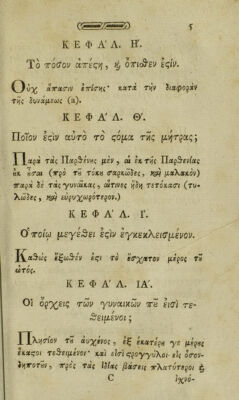 5
ΚΕΦΑΛ. Η΄.
Τὸ πόσον ἀπέχη, ϗ ὄπιθεν ἐςίν.
Οὐχ ἅπασιν ἐπίσης· κατὰ τὴν διαφορὰν
τῆς δυνάμεως (α).
ΚΕΦΑΛ. Θ΄.
Ποῖον ἐςὶν αὐτὸ τὸ ςόμα τῆς μήτρας;
Παρὰ τὰς Παρθένȣς μὲν, αἱ ἐκ τῆς Παρθενίας
ἐκ εἶσαι (πρὸ τȣ̃ τόκȣ σαρκῶδες, καὶ μαλακὸν)
παρὰ δὲ τὰς γυναῖκας, αἵτινες ἤδη τετόκασι (τυ-
λῶδες, καὶ εὐρυχωρότερον.)
ΚΕΦΑΛ. Ι΄.
Ὁποίῳ μεγέθει ἐςὶν ἐγκεκλεισμένον.
Καθὼς ἔξωθέν ἐςι τὸ ἔσχατον μέρος τȣ̃
ὠτός.
ΚΕΦΑΛ. ΙΑ΄.
Οἱ ὄρχεις τῶν γυναικῶν πȣ̃ εἰσὶ τε-
θειμένοι;
Πλησίον τȣ̃ αὐχένος, ἐξ ἑκατέρȣ γε μέρȣς
ἕκαςοι τεθειμένοι· καὶ εἰσὶ ςρογγύλοι εἰς ὅσον-
δηποτȣ̃ν, πρὸς τὰς ἰδίας βάσεις πλατύτεροι ϗ
C
ἰχνό-